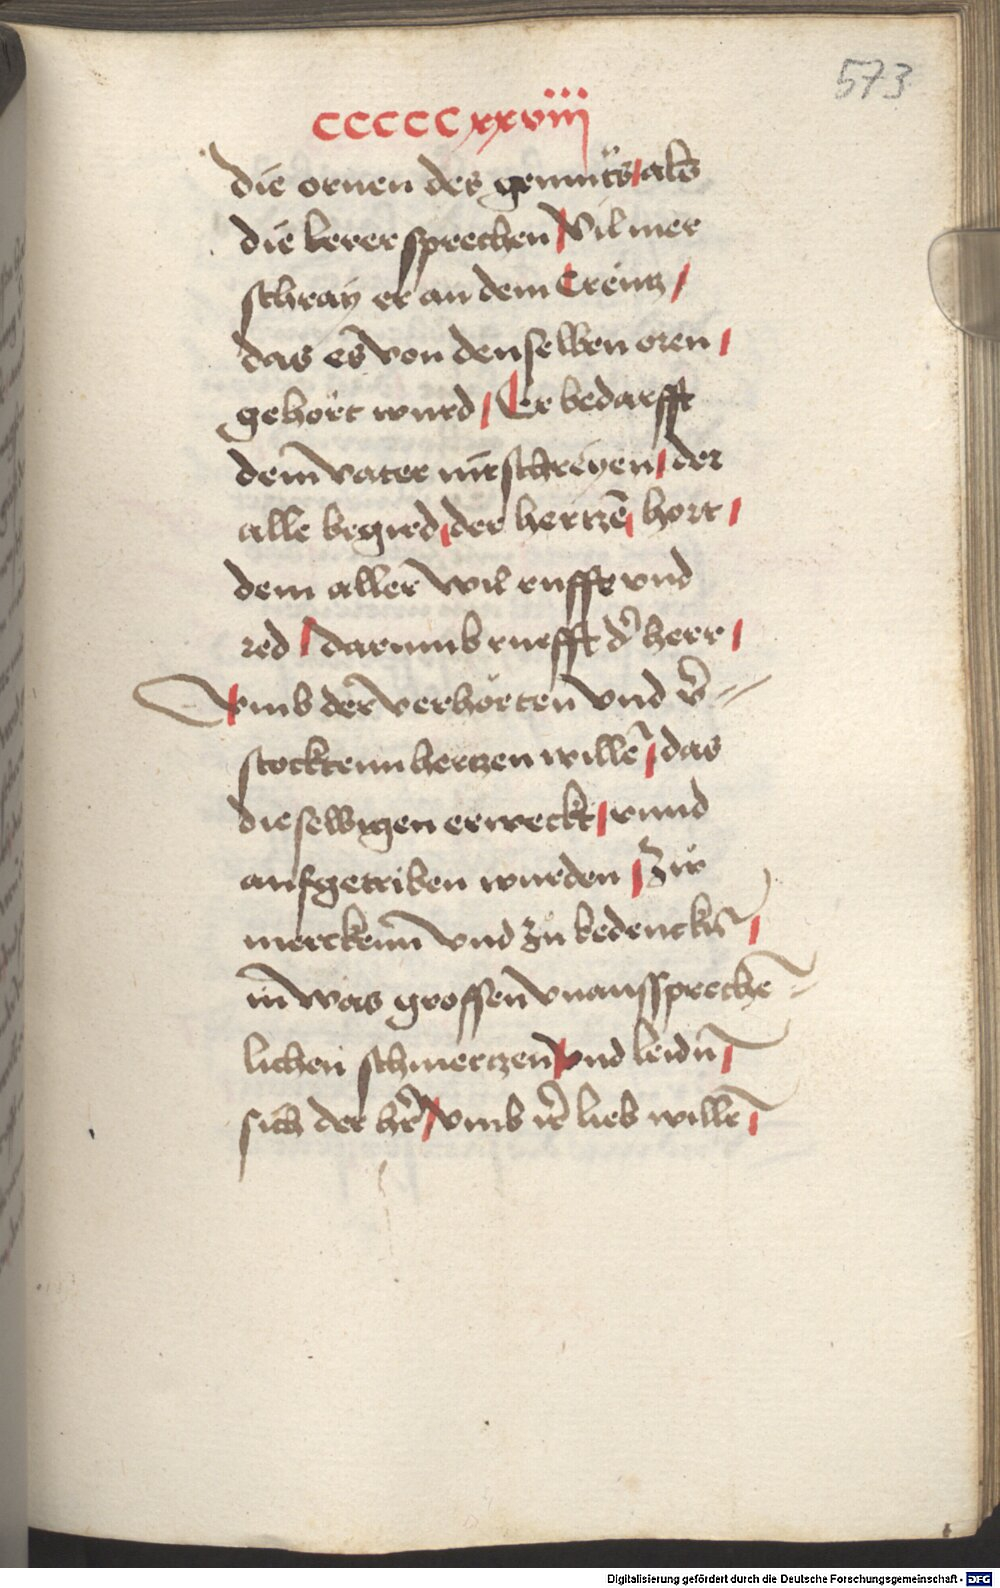 573
cccccxxviij
die oruen des gemüts / als
die lerer sprechen / Vil mer
schray er an dem Creutz /
das es von denselben oren /
gehört wurd / Er bedarfft
dem vater nit schreyen / der
alle begird / der hertzē / hort /
dem aller wil rufft vnd
red / darumb rufft d' herr /
vmb der verhörten vnd v'=
stocktenn hertzen willē / das
dieselbigen erweckt / vnnd
aufgetriben wurden / Zw
merckenn vnd zu bedenckn̄ /
in was grossen vnaussprechē=
lichen schmertzen / vnd leidn̄ /
sich der h're / vmb ir' lieb willē /
Digitalisierung gefördert durch die Deutsche Forschungsgemeinschaft - DFG